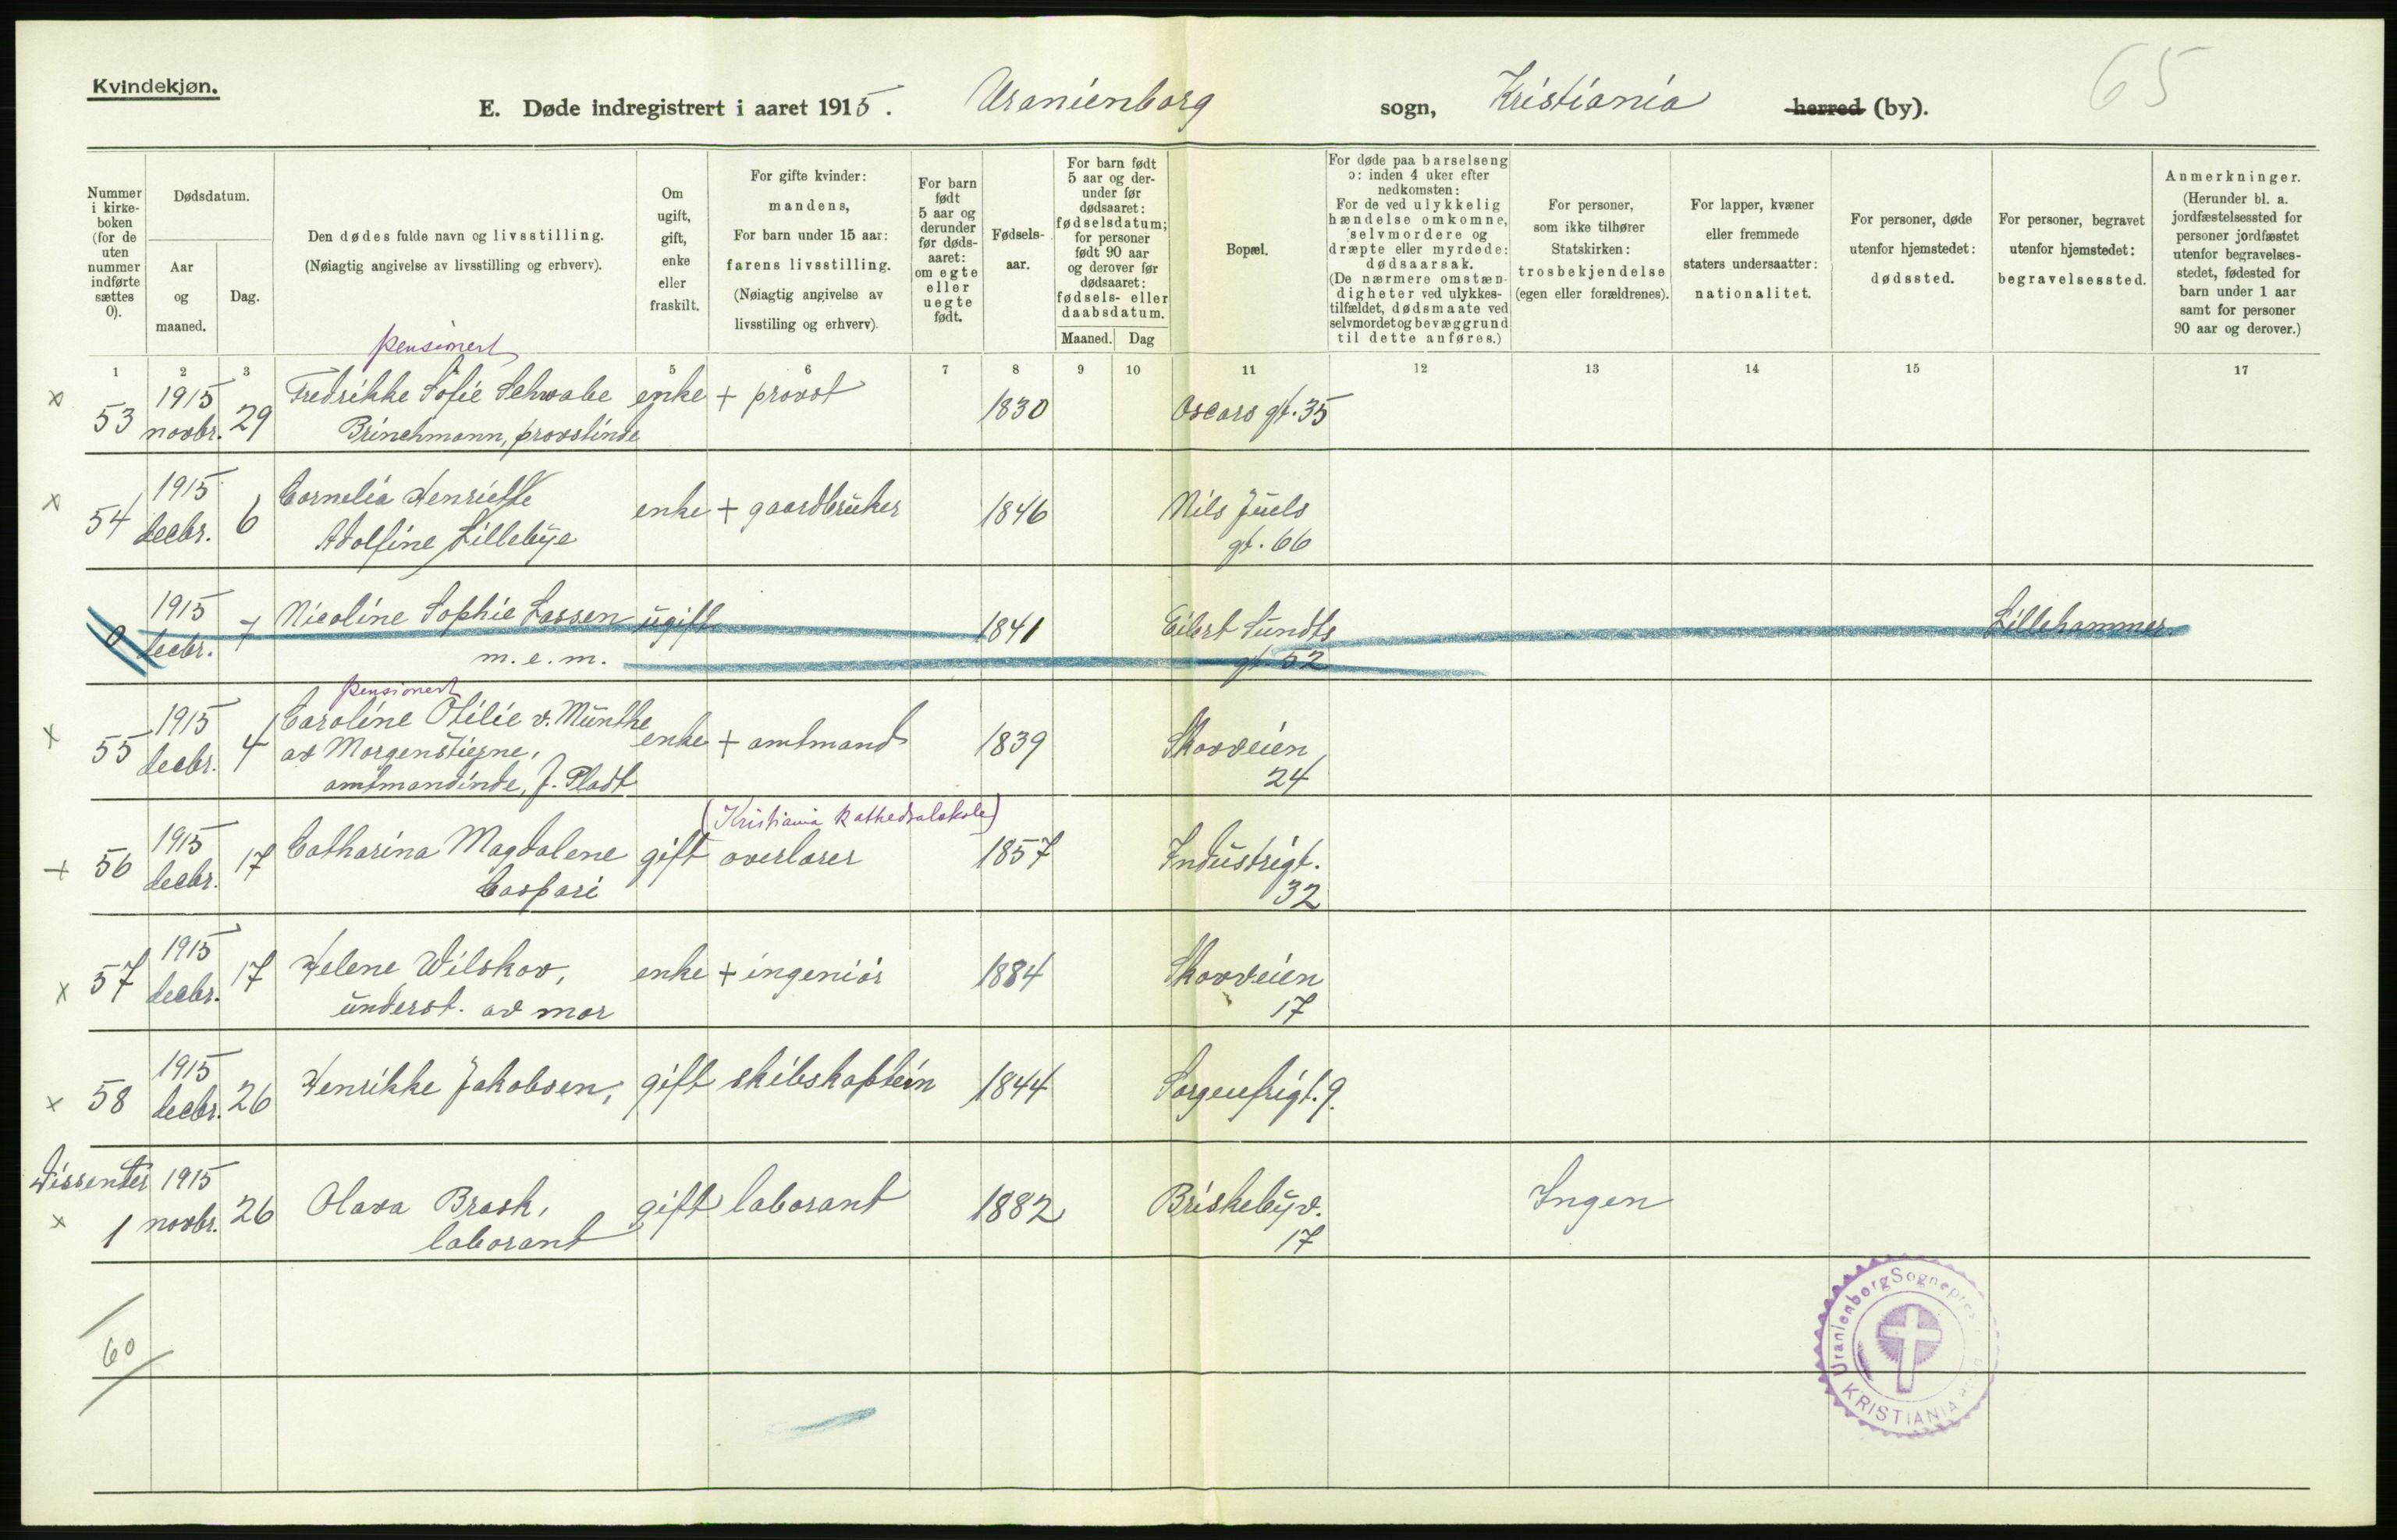 Kvindekjøn.
E. Døde indregistrert i aaret 1915. Uranienborg sogn, Kristiania herred (by).
65
Nummer i kirke-boken (for de uten nummer indførte sættes 0).
Dødsdatum.
Aar og maaned.
Dag.
Den dødes fulde navn og livsstilling.
(Nøiagtig angivelse av livsstilling og erhverv).
Om ugift, gift, enke eller fraskilt.
For gifte kvinder: mandens,
For barn under 15 aar: farens livsstilling.
(Nøiagtig angivelse av livsstiling og erhverv).
For barn født 5 aar og derunder før døds-aaret: om egte eller uegte født.
Fødsels-aar.
For barn født 5 aar og der-under før dødsaaret: fødselsdatum; for personer født 90 aar og derover før dødsaaret: fødsels- eller daabsdatum.
Maaned. Dag
Bopæl.
For døde paa barselseng ɔ: inden 4 uker efter nedkomsten:
For de ved ulykkelig hændelse omkomne, selvmordere og dræpte eller myrdede: dødsaarsak.
(De nærmere omstæn-digheter ved ulykkes-tilfældet, dødsmaate ved selvmordet og bevæggrund til dette anføres.)
For personer, som ikke tilhører Statskirken: trosbekjendelse (egen eller forældrenes).
For lapper, kvæner eller fremmede staters undersaatter: nationalitet.
For personer, døde utenfor hjemstedet: dødssted.
For personer, begravet utenfor hjemstedet: begravelsessted.
Anmerkninger.
(Herunder bl. a. jordfæstelsessted for personer jordfæstet utenfor begravelses-stedet, fødested for barn under 1 aar samt for personer 90 aar og derover.)
1 2 3 5 6 7 8 9 10 11 12 13 14 15 17
pensionert
x 53 1915 novbr. 29 Fredrikke Sofie Schwabe enke + provst 1830 Oscars gt. 35
Brinchmann, provstinde
x 54 1915 decbr. 6 Cornelia Henriette enke + gaardbruker 1846 Nils Juels
Adolfine Lillebye gt. 66
0 1915 decbr. 7 Nicoline Sophie Lassen ugift 1841 Eilert Sundts Lillehammer
m. e. m. gt. 52
pensionert
x 55 1915 decbr. 4 Caroline Otilie v. Munthe enke + amtmand 1839 Skovveien
av Morgenstierne, 24
amtmandinde, f. Pladt
(Kristiania Kathedralskole)
+ 56 1915 decbr. 17 Catharina Magdalene gift overlærer 1857 Industrigt.
Caspari 32
x 57 1915 decbr. 17 Helene Wilskov, enke + ingeniør 1884 Skovveien
underst. av mor 17
x 58 1915 decbr. 26 Henrikke Jakobsen, gift skibskaptein 1844 Sorgenfrigt. 9.
Dissenter
x 1 1915 novbr. 26 Olava Brask, gift laborant 1882 Briskebyv. Ingen
laborant 17
60
Uranienborg KRISTIANIA